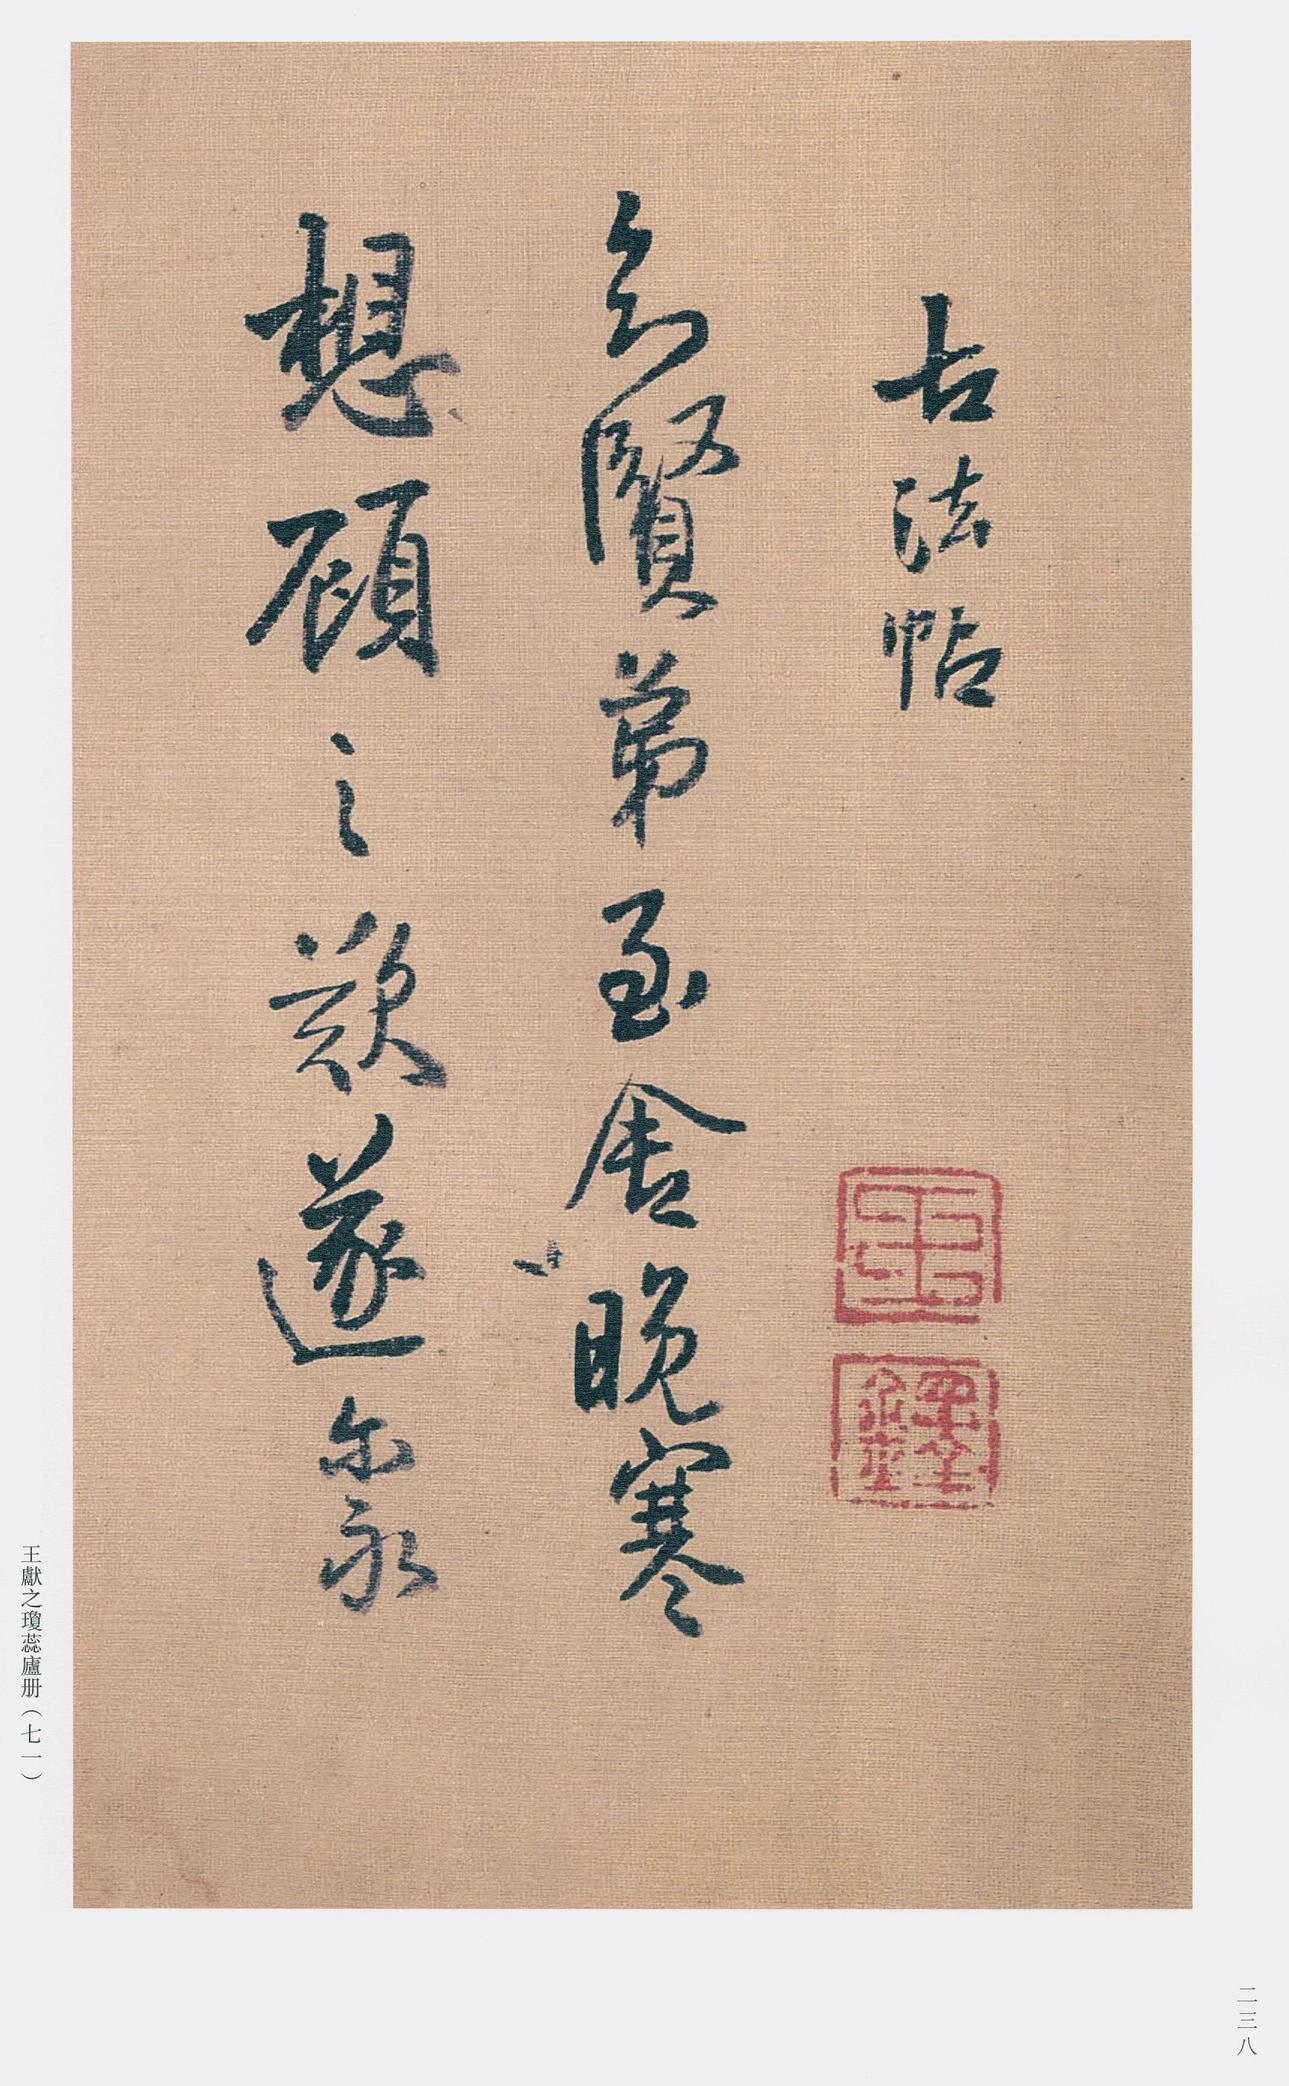 古法帖
知賢弟至舍晚寒
想顧之歎遂尔永
王獻之瓊蕊廬册（七一）
二三八